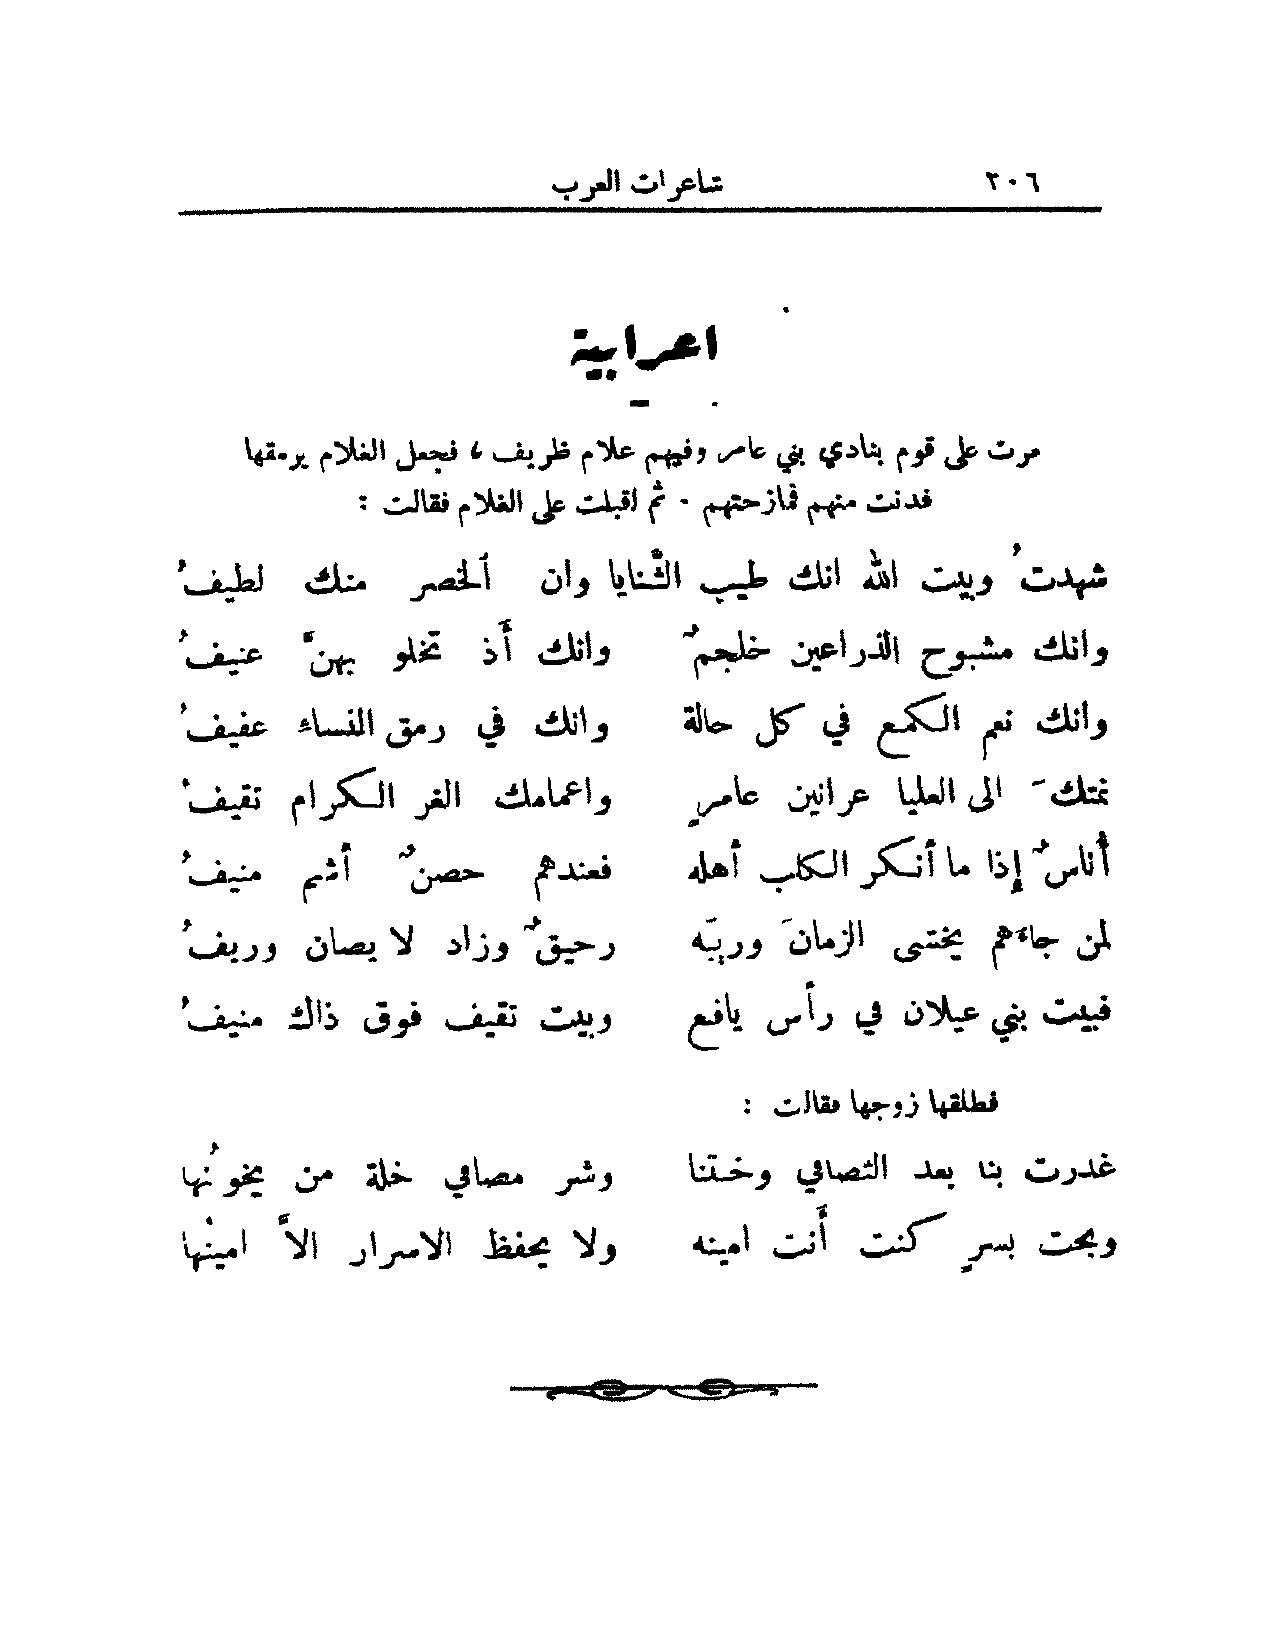 ٢٠٦ شاعرات العرب
اعرابية
مرت على قوم بنادي بني عامر وفيهم علام ظريف ، فجعل الغلام يرمقها
فدنت منهم فمازحتهم . ثم اقبلت على الغلام فقالت :
شهدتُ وبيت الله انك طيب الثَّنايا وان ٱلخصر منك لطيفُ
وانك مشبوح الذراعين خلجمٌ وانك أَذ تخلو بهنَّ عنيفُ
وانك نعم الكمع في كل حالة وانك في رمق النساء عفيفُ
نمتكَ الى العليا عرانين عامرٍ واعمامك الغر الكرام ثقيفُ
أُناسٌ إذا ما أنكر الكلب أهله فعندهم حصنٌ أشم منيفُ
لمن جاءَهم يختشى الزمانَ وريبَه رحيقٌ وزاد لا يصان وريفُ
فبيت بني عيلان في رأس يافع وبيت ثقيف فوق ذاك منيفُ
فطلقها زوجها فقالت :
غدرت بنا بعد التصافي وخنتنا وشر مصافي خلة من يخونُها
وبحت بسرٍ كنت أَنت امينه ولا يحفظ الاسرار الاَّ امينُها